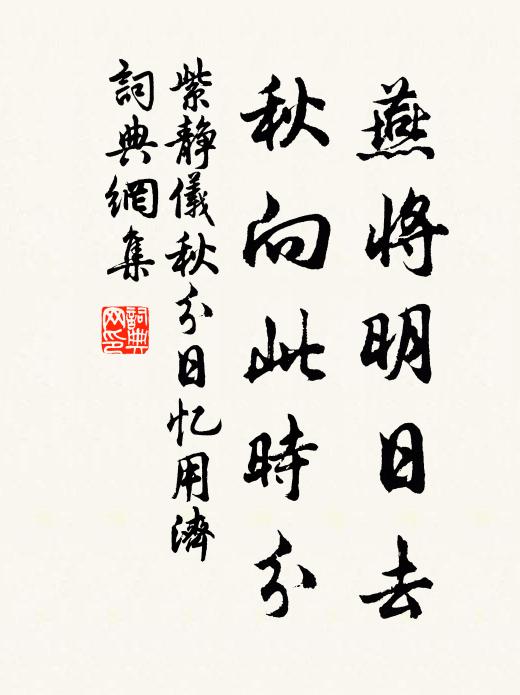 燕将明日去
秋向此時分
紫静儀秋分日忆用濟
詞典網集
詞典网印